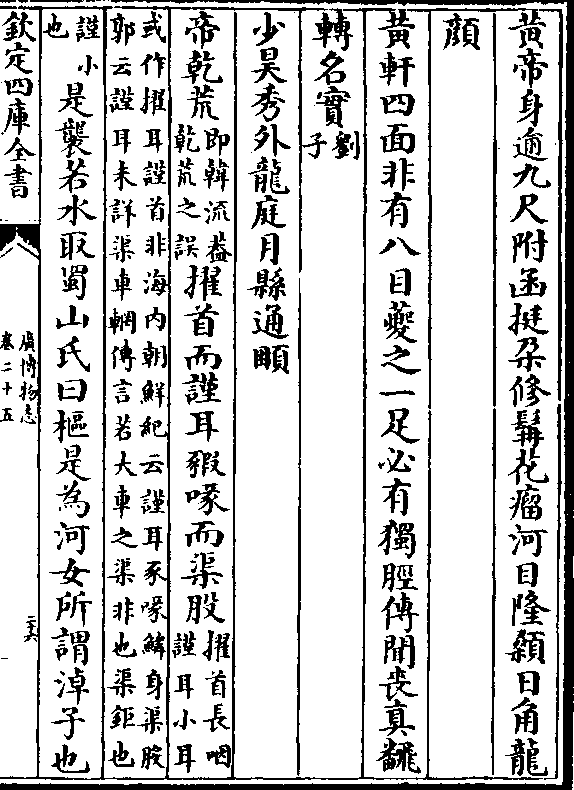 黃帝身逾九尺附函挺朶修髯花瘤河目隆顙日角龍
顔
黃軒四面非有八目夔之一足必有獨脛傳聞喪真翻
轉名實劉
子
少昊秀外龍庭月縣通䫜
帝乾荒即韓流葢
乾荒之誤擢首而謹耳豭喙而渠股擢首長咽
謹耳小耳
或作擢耳謹首非海内朝鮮紀云謹耳豕喙鱗身渠股
郭云謹耳未詳渠車輞傳言若大車之渠非也渠鉅也
謹小
也是襲若水取蜀山氏曰樞是為河女所謂淖子也
欽定四庫全書
廣博物志
卷二十五
二十六